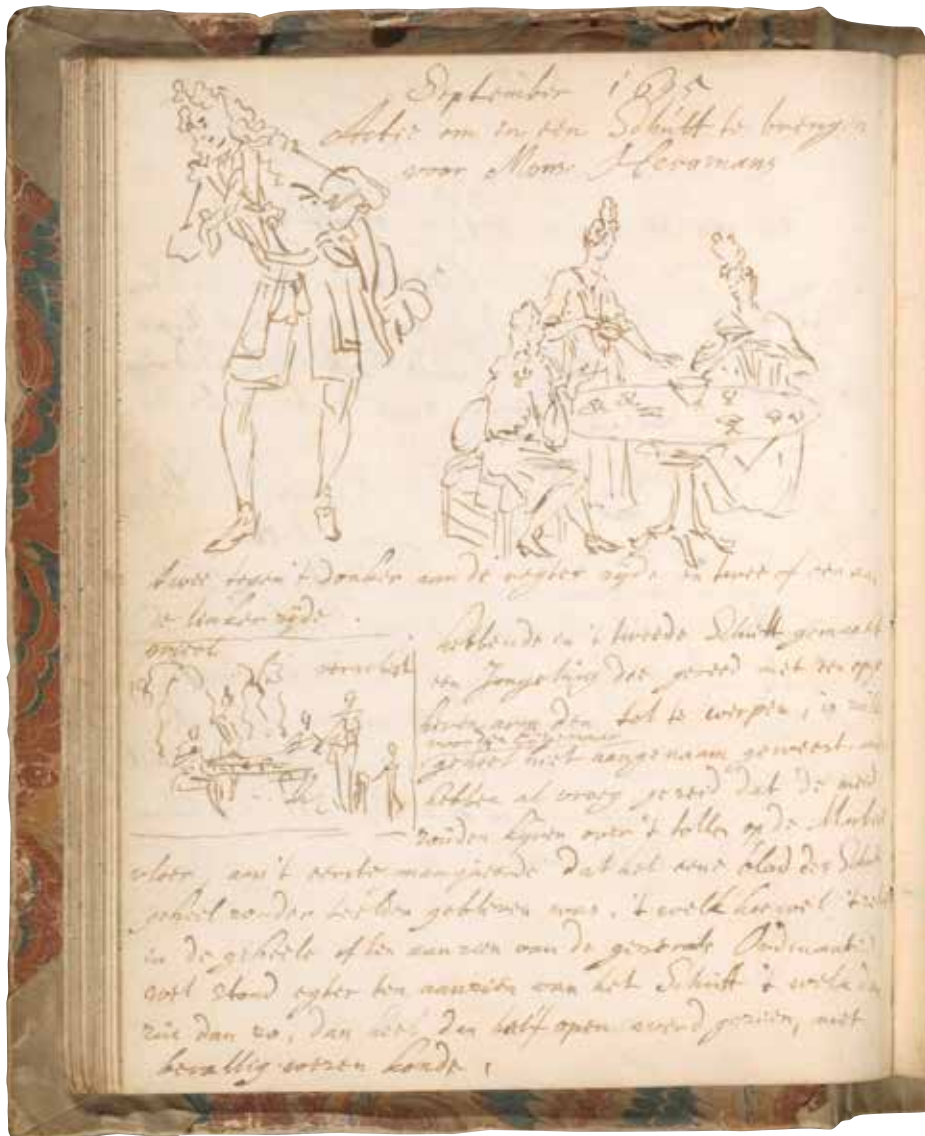 September 1695
Actie om in een Schutt te brengen
voor Mons. Heramans
twee tegen 't donker aan de regter zyde en twee of een aan
de linker zyde.
verschiet
hebbende in 't tweede Schutt gemaekt
een Jongeling die gereed met den opge
heven arm den tol te werpen, is zulx
geheel niet aangenaam geweest.
hebben al vroeg gezeid dat de meid
zouden kyven over 't tollen op de Marber
vloer, aan 't eerste manqueerde dat het eene blad der Schutt
geheel zonder beelden gebleven was, 't welk hoewel
in de geheele often aanzien van de generale Ordinantie
wel stond egter ten aanzien van het Schutt 't welk dan
zus dan zo, dan heel dan half open werd gezien, niet
bevallig wezen konde,